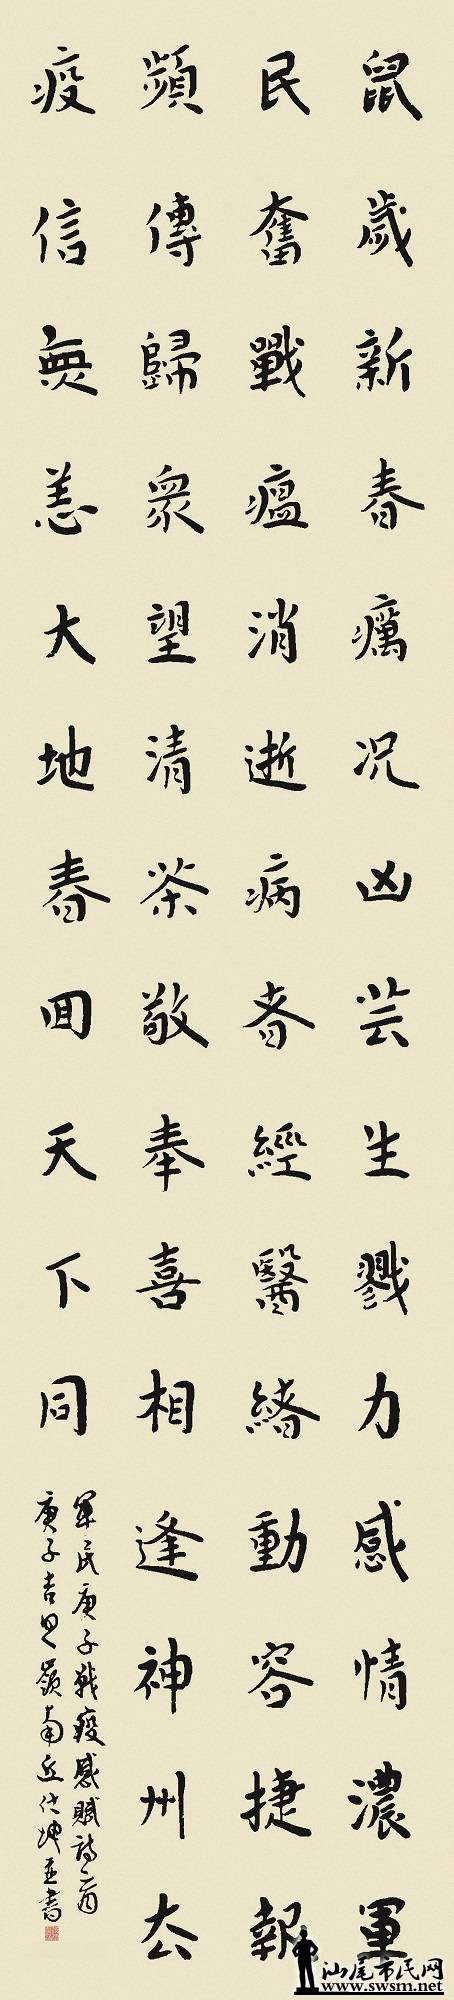 鼠歲新春癘况凶芸生戮力感情濃軍
民奮戰瘟消逝病者經醫緒動容捷報
頻傳歸衆望清茶敬奉喜相逢神州去
疫信無恙大地春回天下同
軍民庚子戰疫感賦詩二首
庚子吉旦嶺南丘仕坤並書
汕尾市民网
www.swsm.net